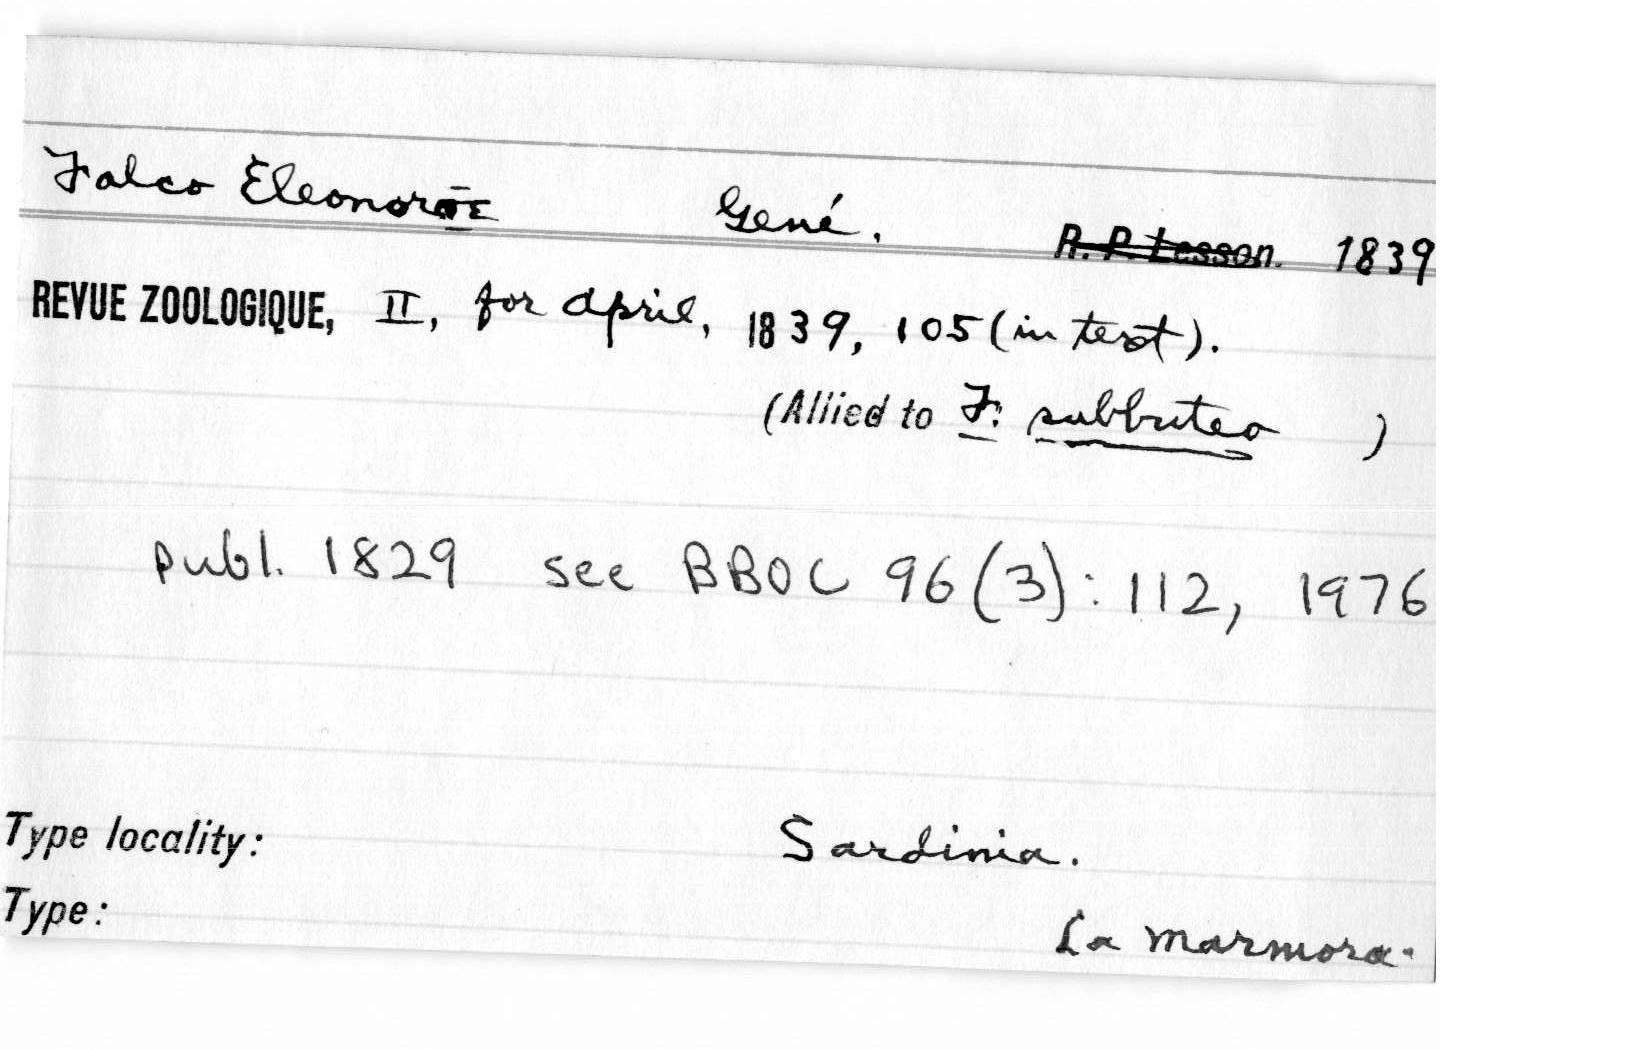 Falco Eleonorae Gené. R. P. Lesson. 1839
REVUE ZOOLOGIQUE, II, for April, 1839, 105 (in text).
(Allied to F. subbuteo )
publ. 1829 see BBOC 96(3): 112, 1976
Type locality: Sardinia.
Type: La Marmora.